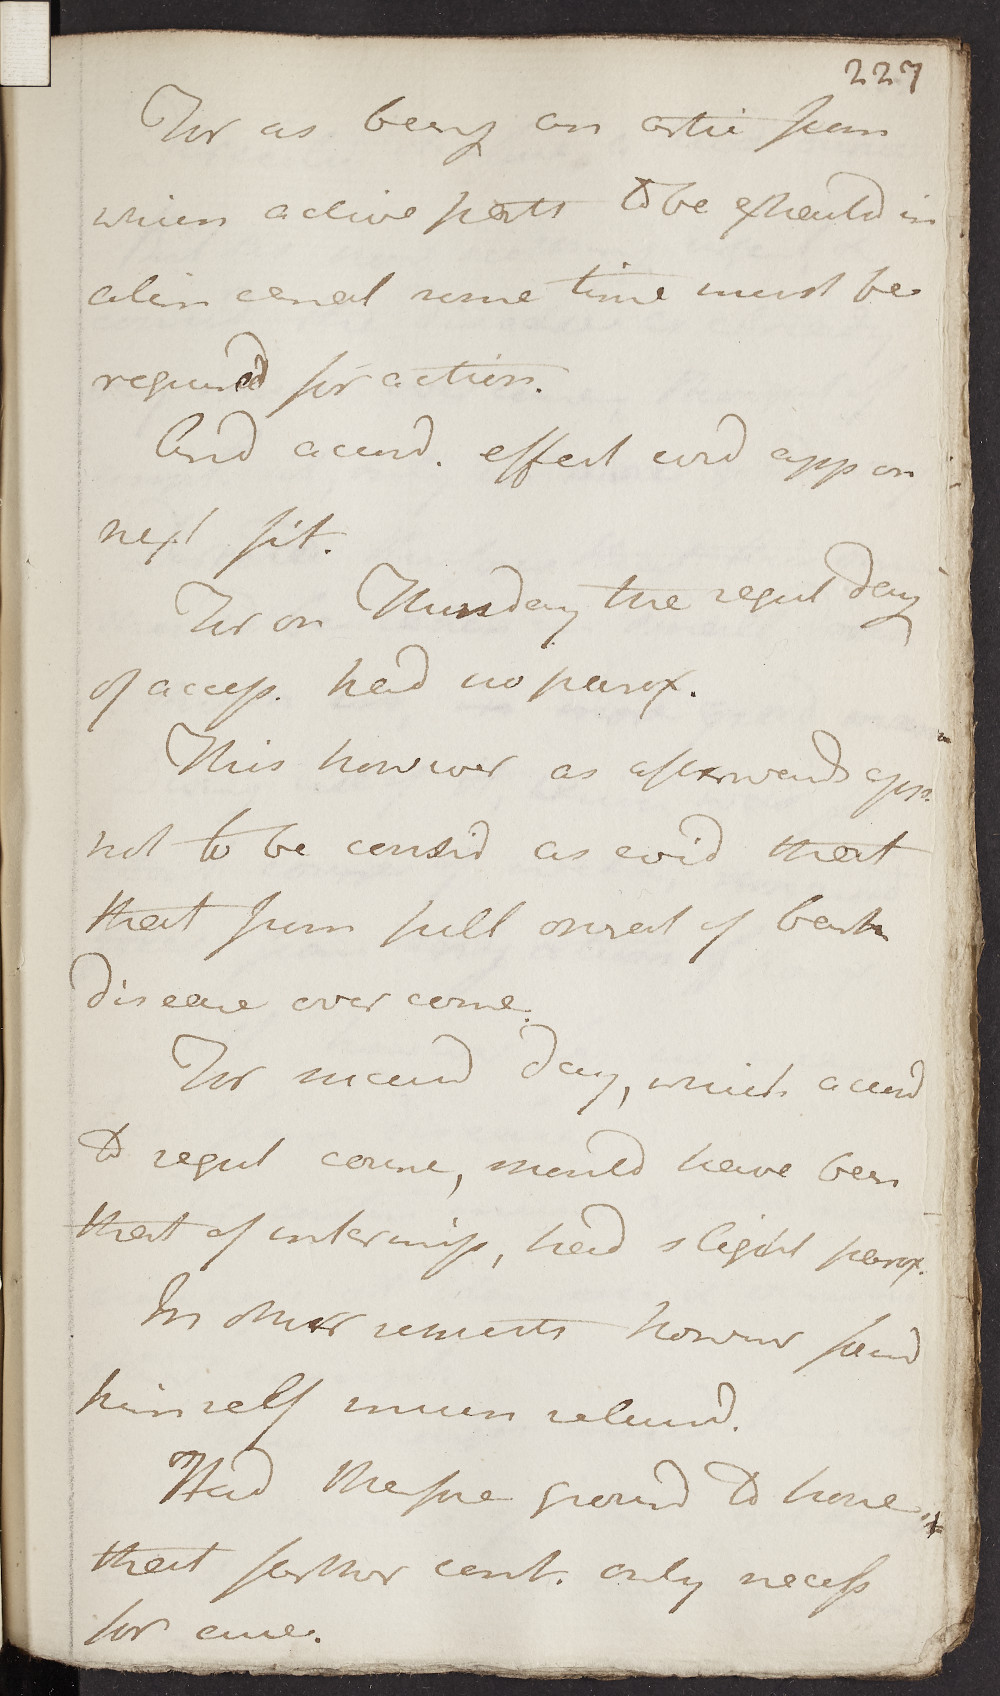 227
For as being an artic from
which active parts to be extracted in
alim canal some time must be
required for action.
And accord. effect cord app on
next fit.
For on Thursday the regul day
of access. had no parox.
This however as afterwards app.
not to be consid as evid that
that from full onset of bark
disease over come.
For second day, which accord
to regul course, should have been
that of intermiss, had slight parox.
In other respects however found
himself much relievd.
Had therfore ground to hope
that farther cont. only necess
for cure.